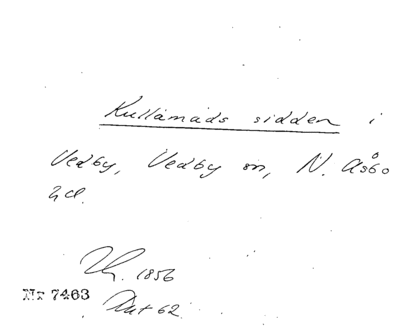 Kullamads sidden i
Vedby, Vedby sn, N. Åsbo
hd.
1856
Nr 7463
Dat 62